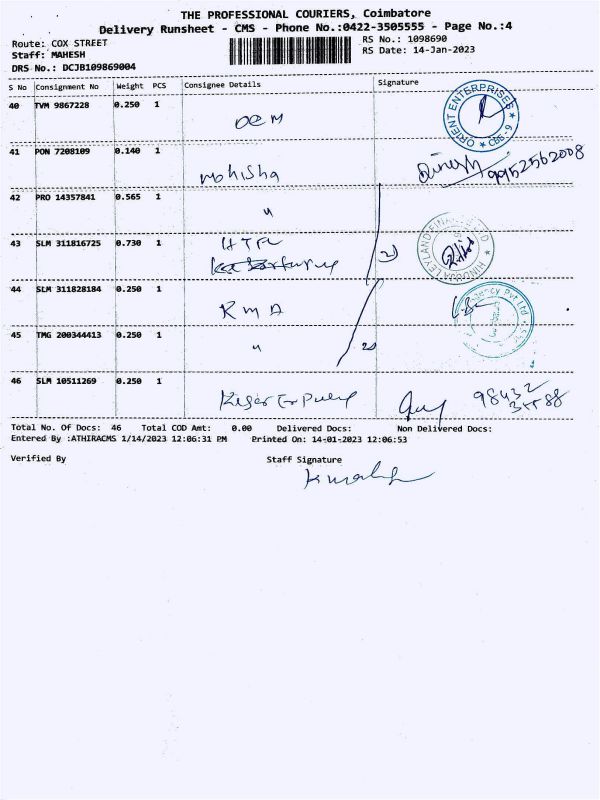 THE PROFESSIONAL COURIERS, Coimbatore
Delivery Runsheet - CMS - Phone No.:0422-3505555 - Page No.:4
Route: COX STREET
RS No.: 1098690
Staff: MAHESH
RS Date: 14-Jan-2023
DRS No.: DCJB109869004
S No Consignment No Weight PCS Consignee Details Signature
40 TVM 9867228 0.250 1
OEM
ORIENT ENTERPRISES ★ CBE-6 ★
41 PON 7208109 0.140 1
Mohisha Dinesh 9952562008
42 PRO 14357841 0.565 1
"
43 SLM 311816725 0.730 1
HINDUJA LEYLAND FINANCE LTD
44 SLM 311828184 0.250 1
RMA
Agency Pvt Ltd
45 TMG 200344413 0.250 1
"
46 SLM 10511269 0.250 1
98432
Total No. Of Docs: 46 Total COD Amt: 0.00 Delivered Docs: Non Delivered Docs:
Entered By :ATHIRACMS 1/14/2023 12:06:31 PM Printed On: 14-01-2023 12:06:53
Verified By Staff Signature